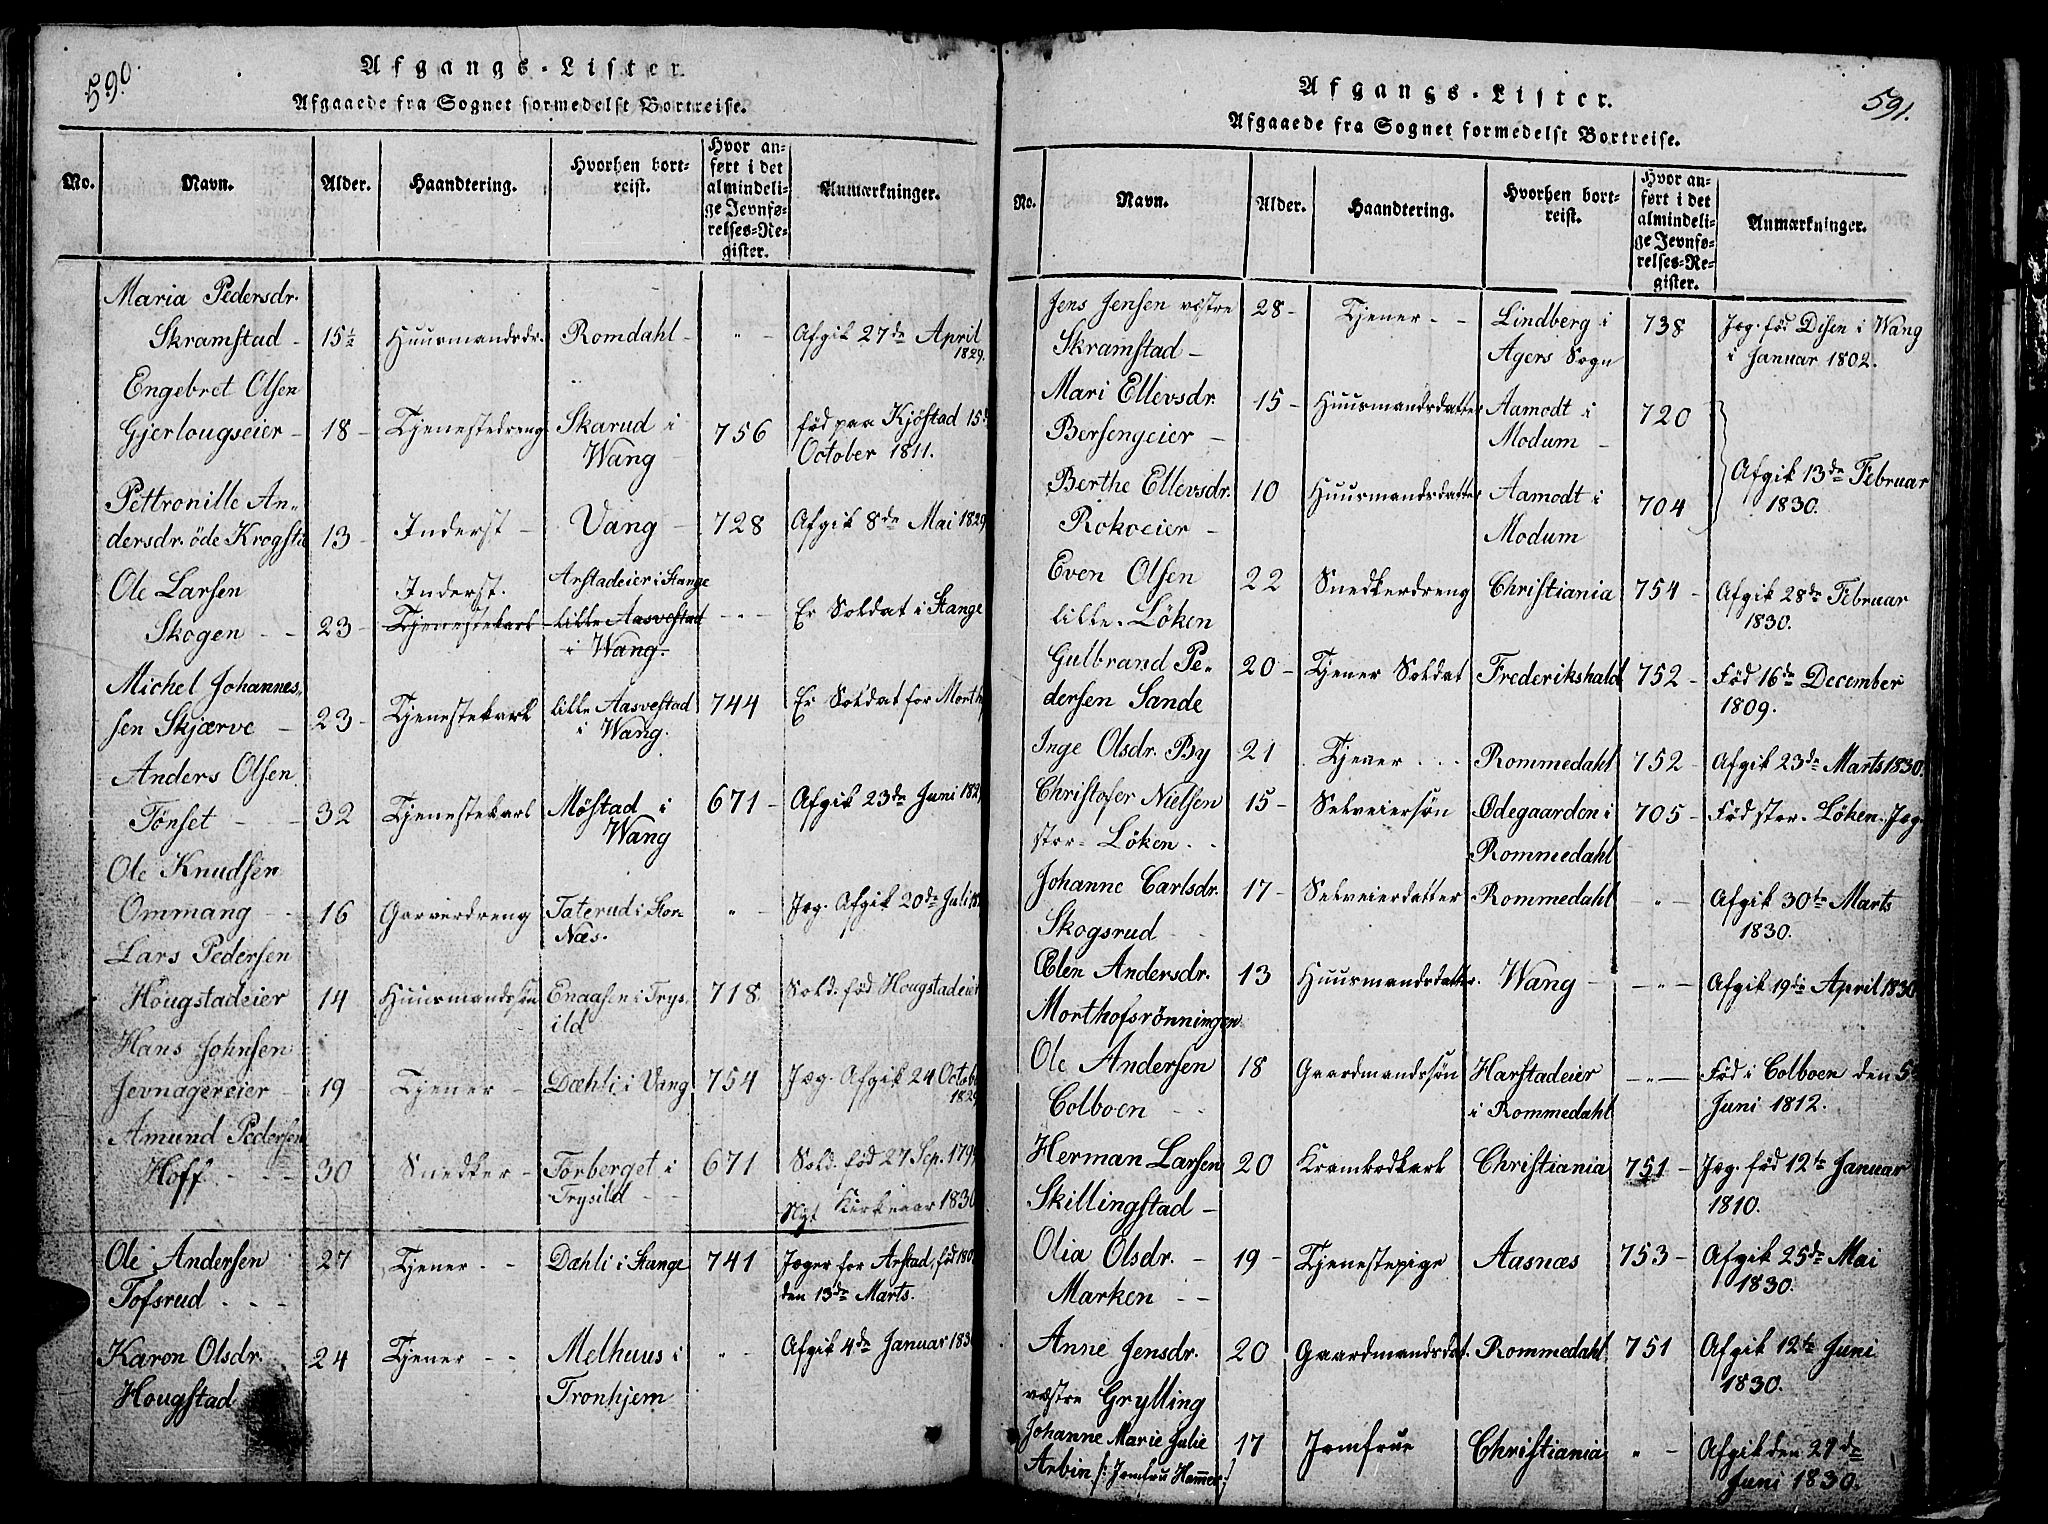 590.
Afgangs-Lister.
Afgaaede fra Sognet formedelst Bortreise.
No. Navn. Alder. Haandtering. Hvorhen bortreist. Hvor anført i det almindelige Jevnførelses-Register. Anmærkninger.
Maria Pedersdr.
Skramstad - 15½ Huusmandsdr. Romdahl - " - Afgik 27de April 1829.
Engebret Olsen
Gjerlougseier - 18 - Tjenestedreng Skarud i Wang 756 født paa Kjöstad 15de October 1811.
Pettronille An-
dersdr. öde Krogstad 13 - Inderst - Vang - 728 Afgik 8de Mai 1829
Ole Larsen Inderst. Arstadeier i Stange
Skogen - - 23 - Tjenestekarl lille Aasvestad i Wang. - - - Er Soldat i Stange
Michel Johannes-
sen Skjærve - 23 - Tjenestekarl lille Aasvestad i Wang. 744 Er Soldat for Morth
Anders Olsen
Tönset - - 32 Tjenestekarl Möstad i Wang 671 - Afgik 23de Juni 182
Ole Knudsen
Ommang - - 16 Garverdreng Taterud i Stor-Næs. " - Jæg. Afgik 20de Juli
Lars Pedersen
Hougstadeier 14 Huusmandssön Enaasen i Trys-ild 718. Sold. född Hougstadeier
Hans Johnsen
Jevnagereier - 19 Tjener - Dæhli i Vang 754 Jæg. Afgik 24 Octob 1829
Amund Pedersen
Hoff - - - 30 Snedker - Torberget i Trysild - 671 Sold. född 27 Sep. 179
Nyt Kirkeaar 1830
Ole Andersen 27 Tjener - - Dæhli i Stange 741 Jæger for Arstad, född 180
Tofsrud . . - den 13de Marts.
Karon Olsdr. 24 Tjener - - Melhuus i " - Afgik 4de Januar 183
Hougstad Tronhjem
591.
Afgangs-Lister.
Afgaaede fra Sognet formedelst Bortreise.
No. Navn. Alder. Haandtering. Hvorhen bortreist. Hvor anført i det almindelige Jevnførelses-Register. Anmærkninger.
Jens Jensen væstre 28 - Tjener - - Lindberg i 738 Jæg. född Disen i Wang
Skramstad - Agers Sogn i Januar 1802.
Mari Ellevsdr. 15 - Huusmandsdatter Aamodt i 720
Bersengeier - Modum -
Berthe Ellevsdr. 10 Huusmandsdatter Aamodt i 704 Afgik 13de Februar 1830.
Rokoeier - Modum
Even Olsen 22 Snedkerdreng Christiania 754 - Afgik 28de Februar
lille Löken 1830.
Gulbrand Pe- 20 - Tjener Soldat Frederikshald 752 - Född 16de December
dersen Sande 1809.
Inge Olsdr. By 21 Tjener - - Rommedahl 752 - Afgik 23de Marts 1830.
Christofer Nielsen 15 - Selveiersön Ødegaarden i 705 - Född stor-Löken. Jæg.
stor-Löken - - Rommedahl
Johanne Carlsdr. 17 - Selveierdatter Rommedahl - " - Afgik 30te Marts
Skogsrud - 1830.
Elen Andersdr. 13 Huusmandsdatter. Wang - - " - Afgik 19de April 1830
Morthofsrönningen
Ole Andersen 18 Gaardmandssön Harstadeier - " - Född i Colboen den 5te
Colboen - - i Rommedahl Juni 1812.
Herman Larsen 20 Krambodkarl Christiania 751 - Jæg. född 12te Januar
Skillingstad - 1810.
Olia Olsdr. - 19 - Tjenestepige Aasnæs 753 - Afgik 25de Mai
Marken - - 1830.
Anne Jensdr. 20 Gaardmandsdat. Rommedahl 751 Afgik 12te Juni
væstre Grylling 1830.
Johanne Marie Julie 17 Jomfrue Christiania " - Afgik den 27de
Arbin /: Jomfru Hammer :/ Juni 1830.